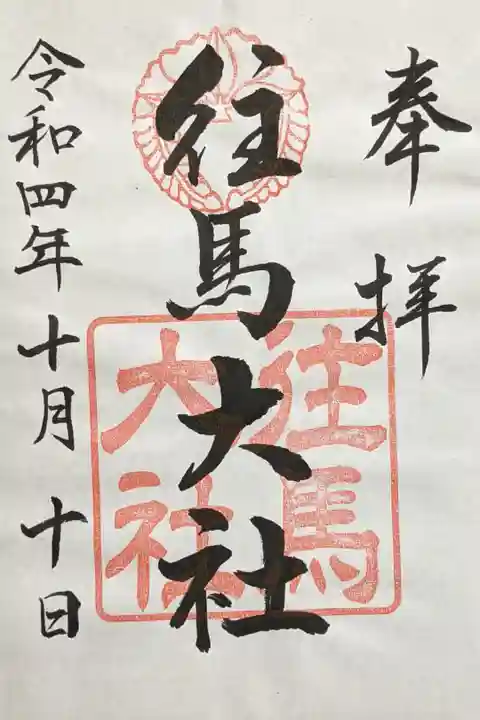 奉拝
往馬大社
往馬
大社
令和四年十月十日